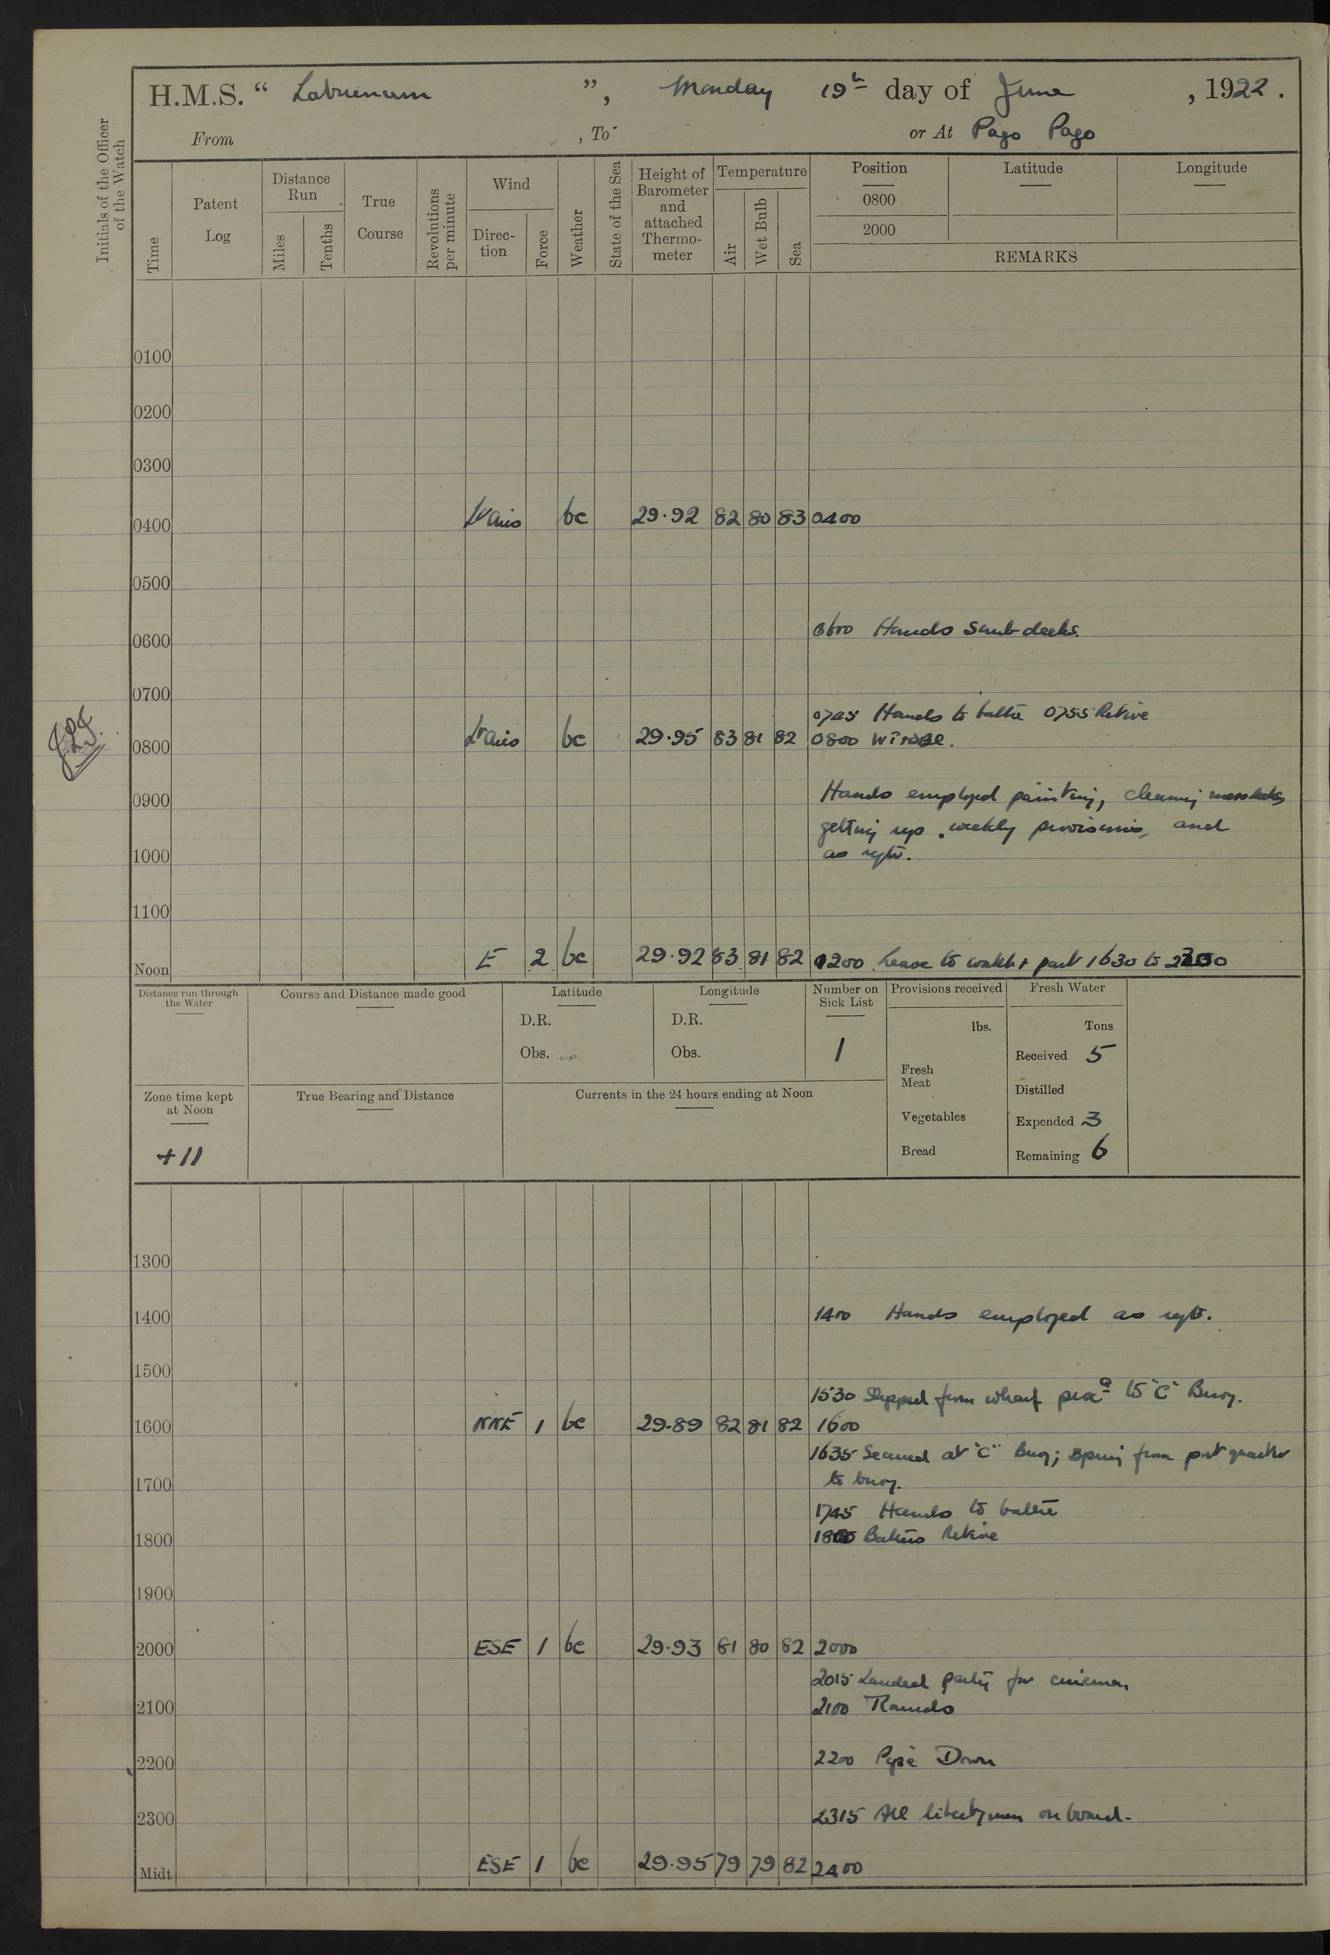 H.M.S. “ Laburnum ”, Monday 19th day of June , 1922.
From , To or At Pago Pago
Initials of the Officer of the Watch
Time
Patent Log
Distance Run
Miles
Tenths
True Course
Revolutions per minute
Wind
Direc- tion
Force
Weather
State of the Sea
Height of Barometer and attached Thermo- meter
Temperature
Air
Wet Bulb
Sea
Position Latitude Longitude
0800
2000
REMARKS
0100
0200
0300
0400 Lt Airs bc 29.92 82 80 83 0400
0500
0600 0600 Hands scrub decks.
0700
0745 Hands to bathe 0755 Retire
0800 Lt Airs bc 29.95 83 81 82 0800
0900 Hands employed painting, cleaning messdecks
getting up weekly provisions, and
1000 as reqte.
1100
Noon E 2 bc 29.92 83 81 82 1200 Leave to watch & part 1630 to
Distance run through the Water
Course and Distance made good
Latitude
D.R.
Obs.
Longitude
D.R.
Obs.
Number on Sick List
1
Provisions received
lbs.
Fresh Meat
Vegetables
Bread
Fresh Water
Tons
Received 5
Distilled
Expended 3
Remaining 6
Zone time kept at Noon
+11
True Bearing and Distance
Currents in the 24 hours ending at Noon
1300
1400 1400 Hands employed as reqte.
1500
1530 Slipped from wharf procd to "C" Buoy.
1600 NNE 1 bc 29.89 82 81 82 1600
1635 Secured at "C" Buoy; Spring from port quarter
1700 to buoy.
1745 Hands to bathe
1800 Bathers Retire
1900
2000 ESE 1 bc 29.93 81 80 82 2000
2015 Landed party for cinema.
2100 2100 Rounds
2200 2200 Pipe Down
2300 2315 All libertymen on board.
Midt ESE 1 bc 29.95 79 79 82 2400